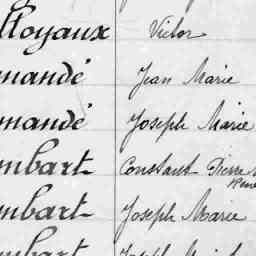 lloyaux Victor
mandé Jean Marie
mandé Joseph Marie
mbart Constant Pierre
René
mbart Joseph Marie
mbart Joseph